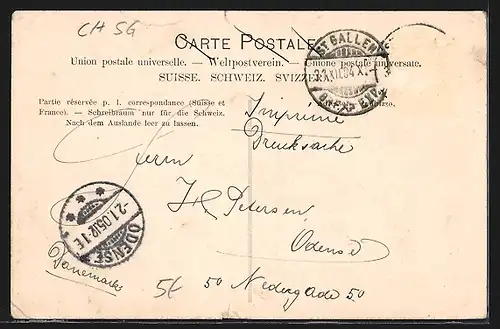 CH SG
CARTE POSTALE
Union postale universelle. — Weltpostverein. — Unione postale universale.
SUISSE. SCHWEIZ. SVIZZERA.
ST GALLEN
Partie réservée p. l. correspondance (Suisse et
France). — Schreibraum nur für die Schweiz.
Nach dem Auslande leer zu lassen.
Imprimé
Drucksache
Herrn
H. Petersen
Odense
-2.1.05.12-1E
ODENSE
Danemark
50 Nedergade 50